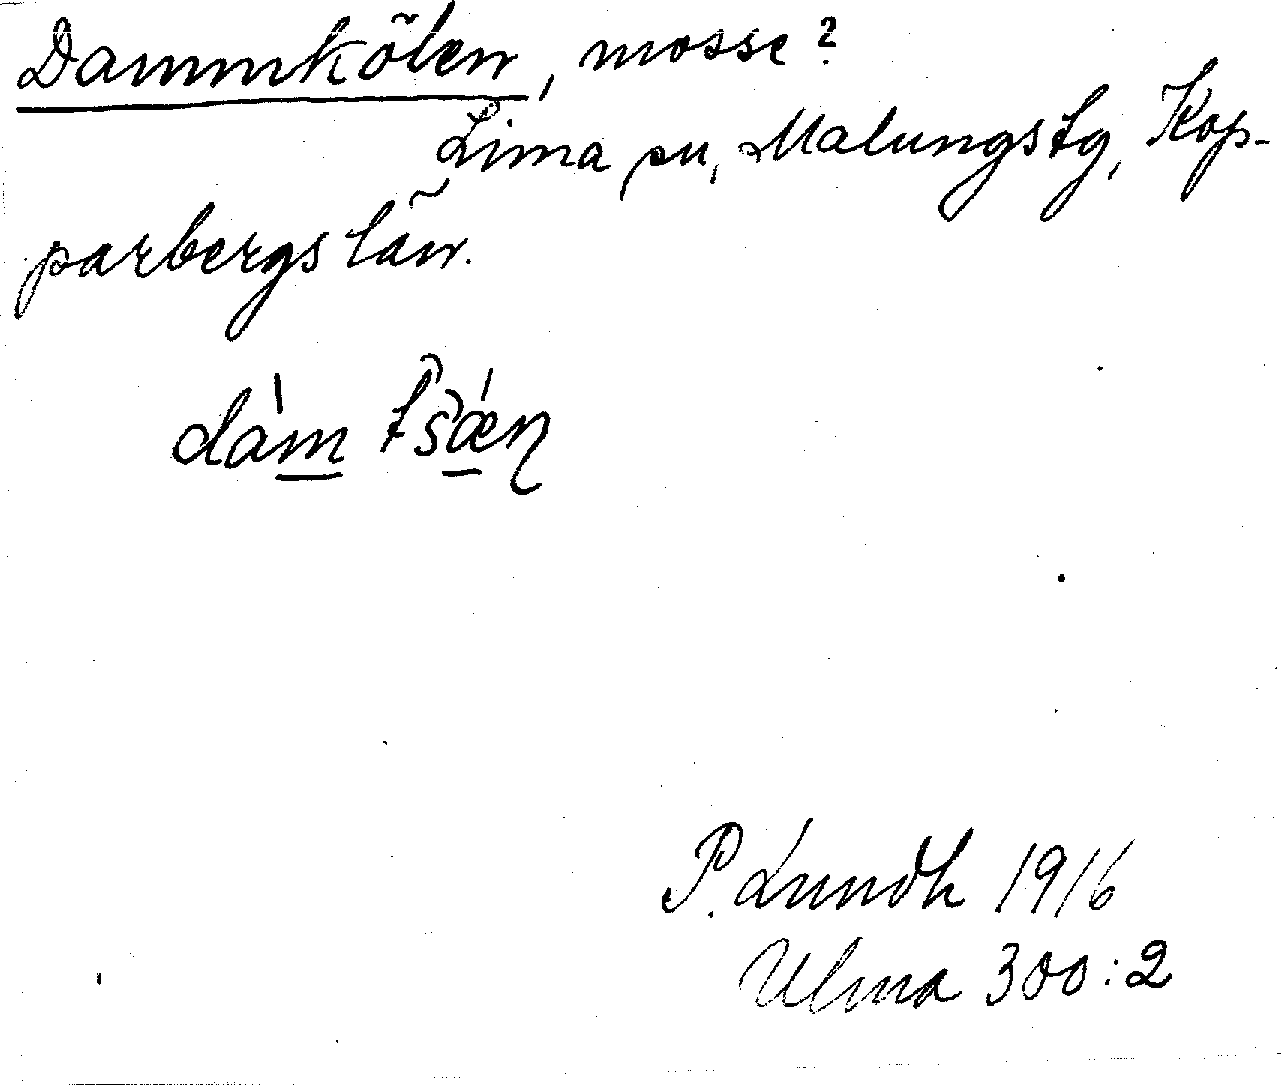 Dammkölen, mosse?
Lima sn, Malungs tg, Kop-
parbergs län.
dàm̲ tʃǽ̲ɳ
P. Lundh 1916
Ulma 300:2